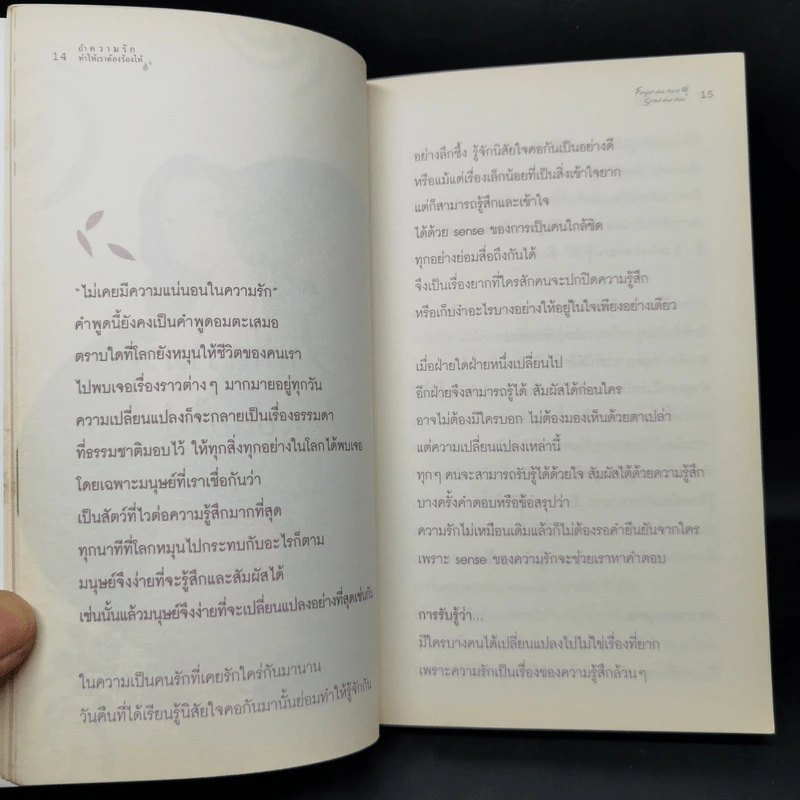 14
ถ้าความรัก
ทำให้เราต้องร้องไห้
"ไม่เคยมีความแน่นอนในความรัก"
คำพูดนี้ยังคงเป็นคำพูดอมตะเสมอ
ตราบใดที่โลกยังหมุนให้ชีวิตของคนเรา
ไปพบเจอเรื่องราวต่างๆ มากมายอยู่ทุกวัน
ความเปลี่ยนแปลงก็จะกลายเป็นเรื่องธรรมดา
ที่ธรรมชาติมอบไว้ ให้ทุกสิ่งทุกอย่างในโลกได้พบเจอ
โดยเฉพาะมนุษย์ที่เราเชื่อกันว่า
เป็นสัตว์ที่ไวต่อความรู้สึกมากที่สุด
ทุกนาทีที่โลกหมุนไปกระทบกับอะไรก็ตาม
มนุษย์จึงง่ายที่จะรู้สึกและสัมผัสได้
เช่นนั้นแล้วมนุษย์จึงง่ายที่จะเปลี่ยนแปลงอย่างที่สุดเช่นกัน
ในความเป็นคนรักที่เคยรักใคร่กันมานาน
วันคืนที่ได้เรียนรู้นิสัยใจคอกันมานั้นย่อมทำให้รู้จักกัน
15
อย่างลึกซึ้ง รู้จักนิสัยใจคอกันเป็นอย่างดี
หรือแม้แต่เรื่องเล็กน้อยที่เป็นสิ่งเข้าใจยาก
แต่ก็สามารถรู้สึกและเข้าใจ
ได้ด้วย sense ของการเป็นคนใกล้ชิด
ทุกอย่างย่อมสื่อถึงกันได้
จึงเป็นเรื่องยากที่ใครสักคนจะปกปิดความรู้สึก
หรือเก็บงำอะไรบางอย่างให้อยู่ในใจเพียงอย่างเดียว
เมื่อฝ่ายใดฝ่ายหนึ่งเปลี่ยนไป
อีกฝ่ายจึงสามารถรู้ได้ สัมผัสได้ก่อนใคร
อาจไม่ต้องมีใครบอก ไม่ต้องมองเห็นด้วยตาเปล่า
แต่ความเปลี่ยนแปลงเหล่านี้
ทุกๆ คนจะสามารถรับรู้ได้ด้วยใจ สัมผัสได้ด้วยความรู้สึก
บางครั้งคำตอบหรือข้อสรุปว่า
ความรักไม่เหมือนเดิมแล้วก็ไม่ต้องรอคำยืนยันจากใคร
เพราะ sense ของความรักจะช่วยเราหาคำตอบ
การรับรู้ว่า...
มีใครบางคนได้เปลี่ยนแปลงไปไม่ใช่เรื่องที่ยาก
เพราะความรักเป็นเรื่องของความรู้สึกล้วนๆ